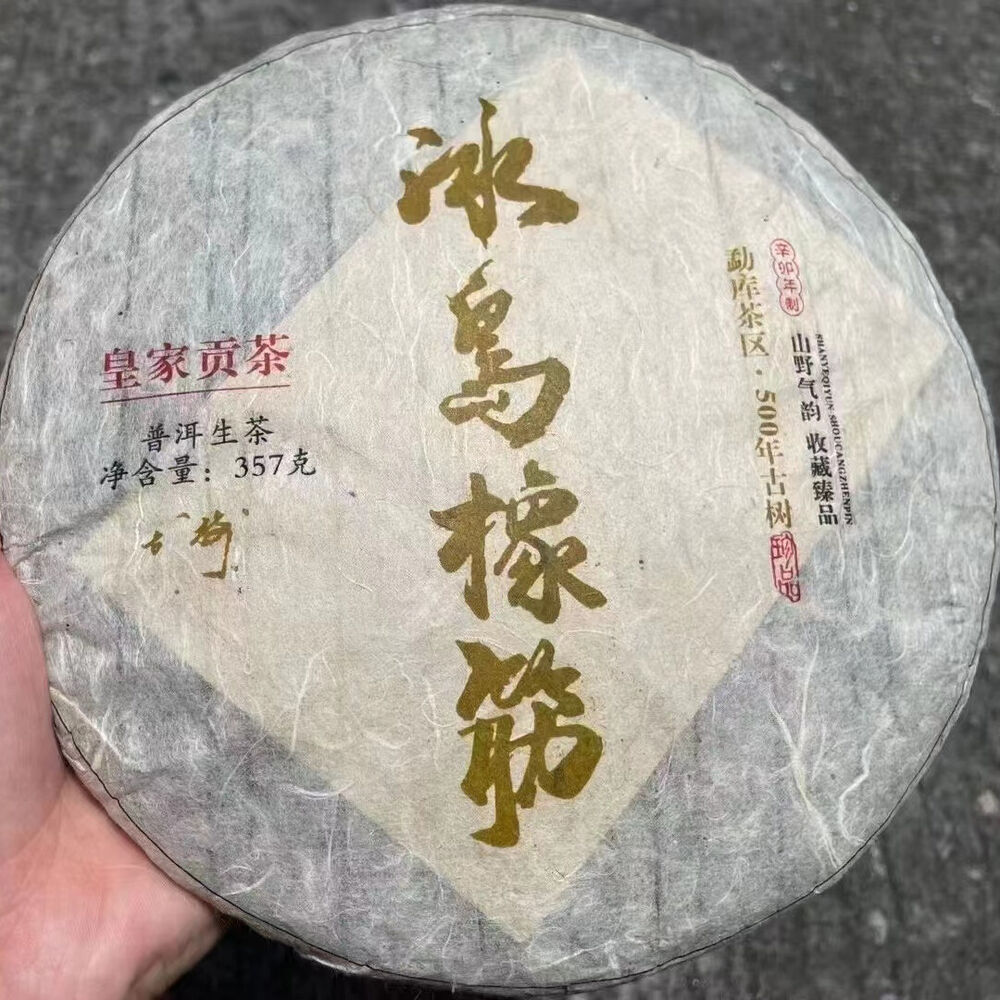 冰島橡筋
辛卯年制
山野气韵 收藏臻品
SHANYEQIYUN SHOUCANGZHENPIN
勐库茶区·500年古树
珍品
皇家贡茶
普洱生茶
净含量：357克
古树